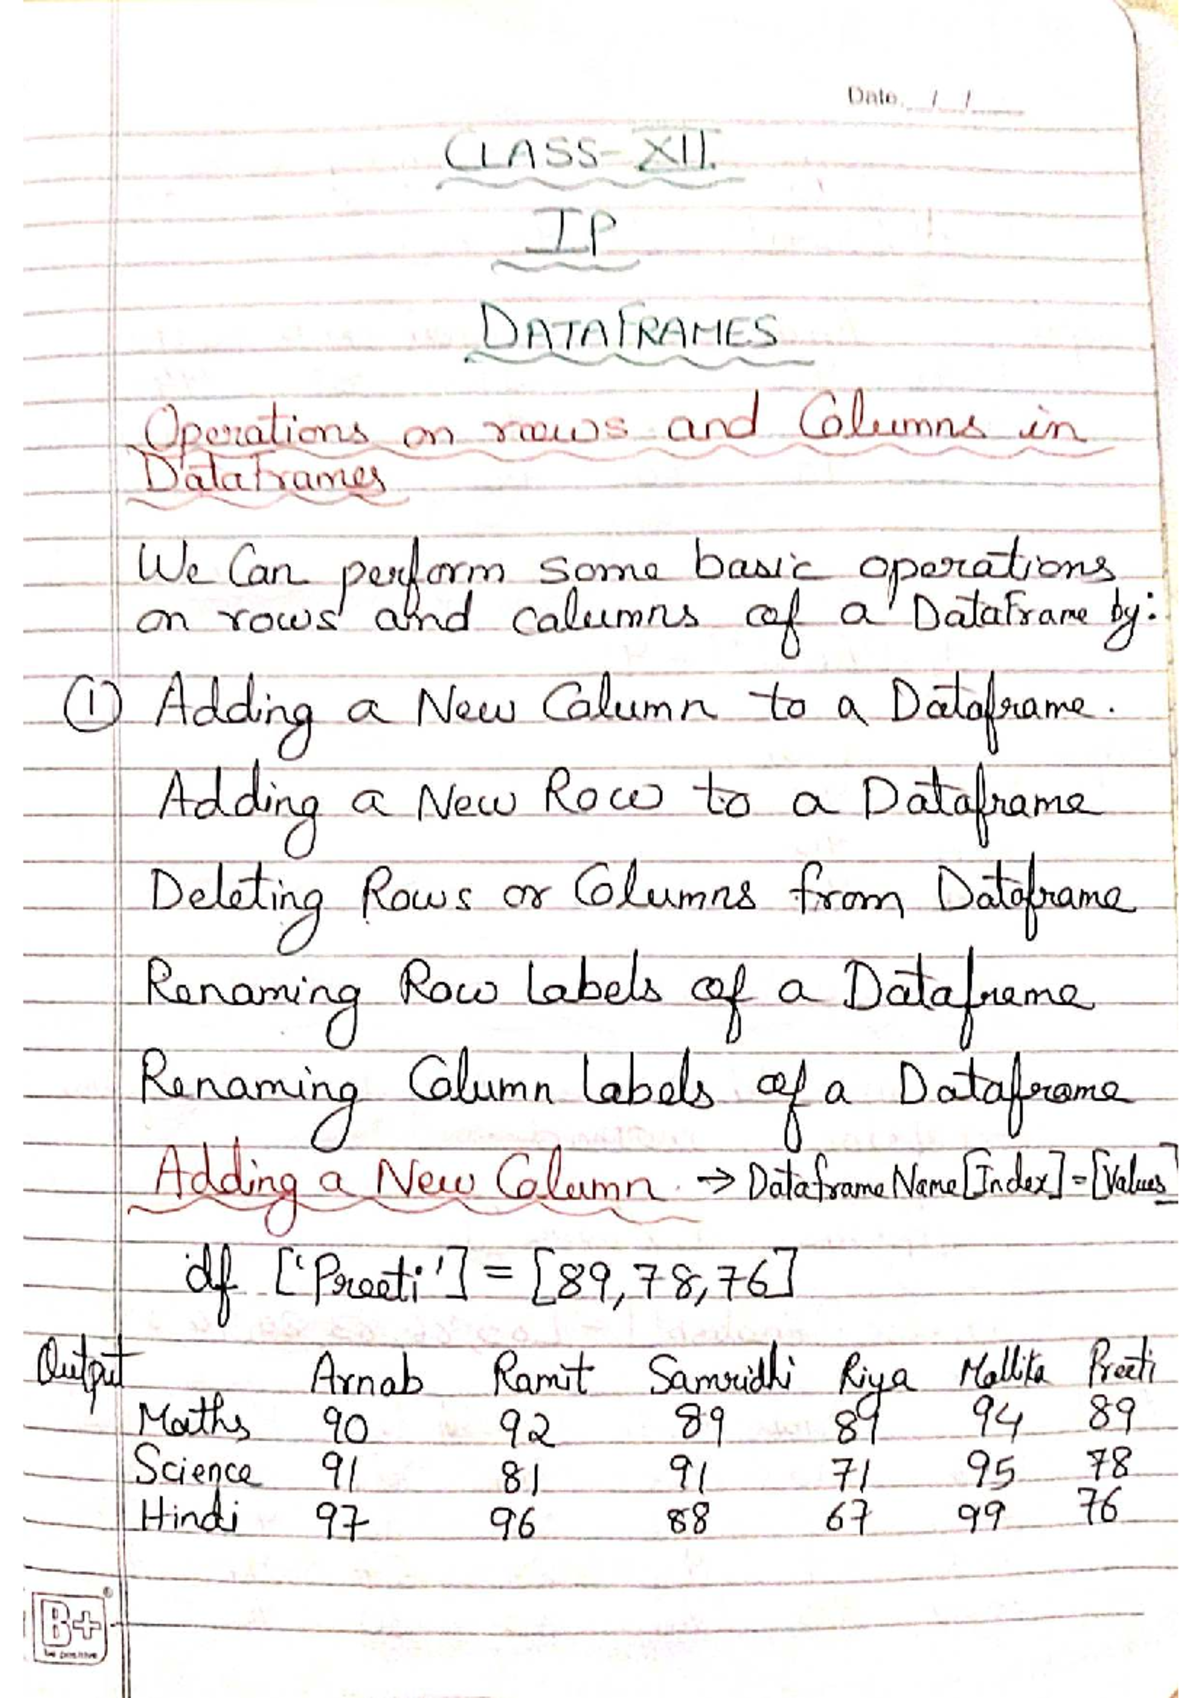 Date. / /
CLASS-XII.
IP
DATAFRAMES
Operations on rows and Columns in
Dataframes
We Can perform some basic operations
on rows and columns of a DataFrame by:
① Adding a New Column to a Dataframe.
Adding a New Row to a Dataframe
Deleting Rows or Columns from Dataframe
Renaming Row labels of a Dataframe
Renaming Column labels of a Dataframe
Adding a New Column. → Dataframe Name [Index] = [Values]
df ['Preeti'] = [89,78,76]
Output Arnab Ramit Samridhi Riya Mallika Preeti
Maths 90 92 89 89 94 89
Science 91 81 91 71 95 78
Hindi 97 96 88 67 99 76
B+
be positive